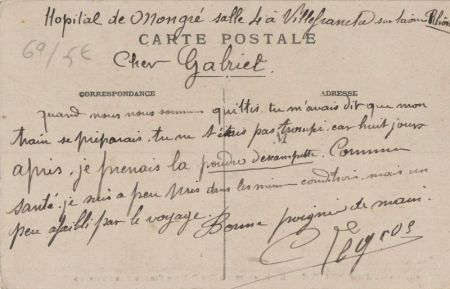 Hopital de Mongré salle 4 à Villefranche sur Saône Rhône
CARTE POSTALE
69/5€
Cher Gabriel.
CORRESPONDANCE
ADRESSE
quand nous nous sommes quittés. tu m'avais dit que mon
train se préparait. tu ne t'étais pas trompé. car huit jours
après, je prenais la poudre d'escampette. Comme
santé. je suis a peu près dans les même conditions. mais un
peu afaibli par le voyage. Bonne poigné de main.